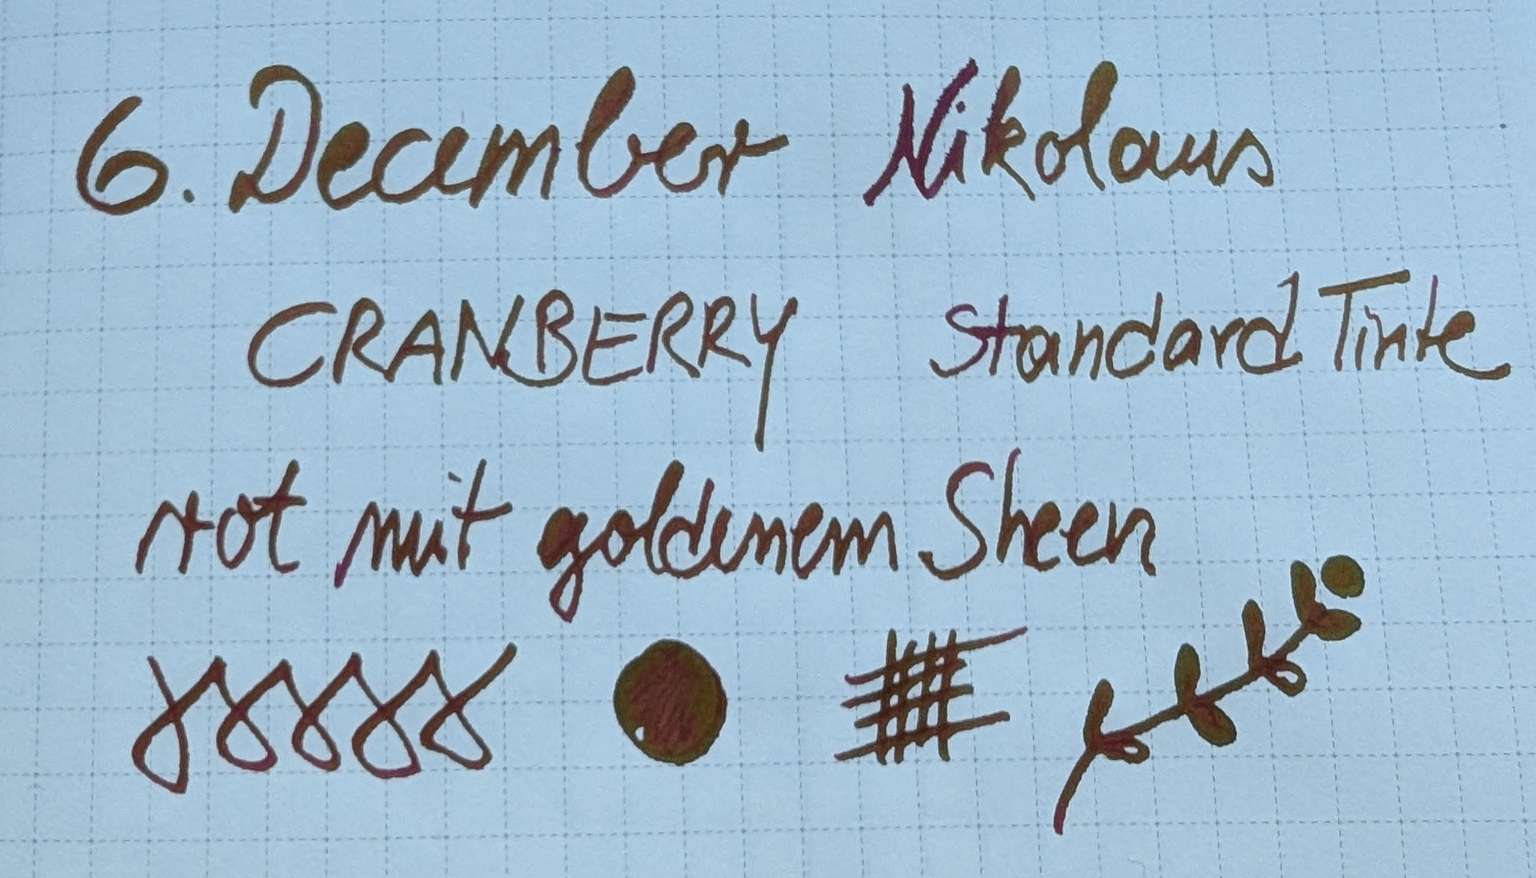 6. December Nikolaus
CRANBERRY Standard Tinte
rot mit goldenem Sheen